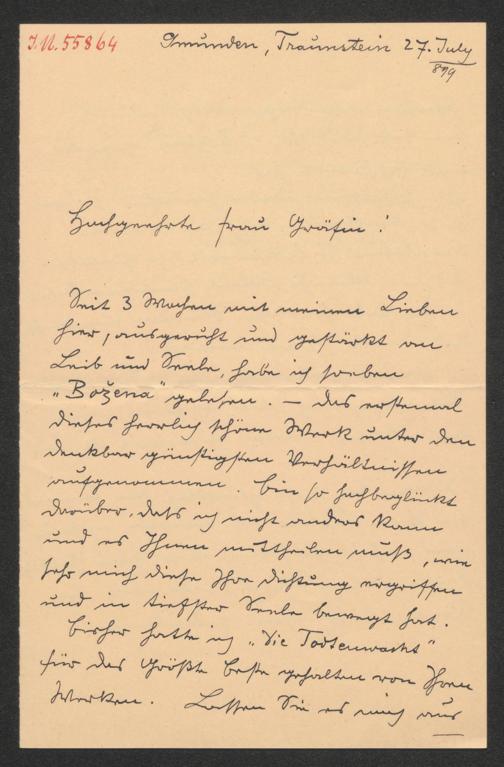 I.N. 55864
Gmunden, Traunstein 27. July
899
Hochgeehrte Frau Gräfin!
Seit 3 Wochen mit meinen Lieben
hier, ausgeruht und gestärkt an
Leib und Seele, habe ich soeben
„Božena" gelesen. – das erstemal
dieses herrlich schöne Werk unter den
denkbar günstigsten Verhältnissen
aufgenommen. Bin so hochbeglückt
darüber, dass ich nicht anders kann
und es Ihnen mittheilen muß, wie
sehr mich diese Ihre Dichtung ergriffen
und in tiefster Seele bewegt hat.
Bisher hatte ich „Die Todtenwacht"
für das Größte Beste gehalten von Ihren
Werken. Lassen Sie es mich aus